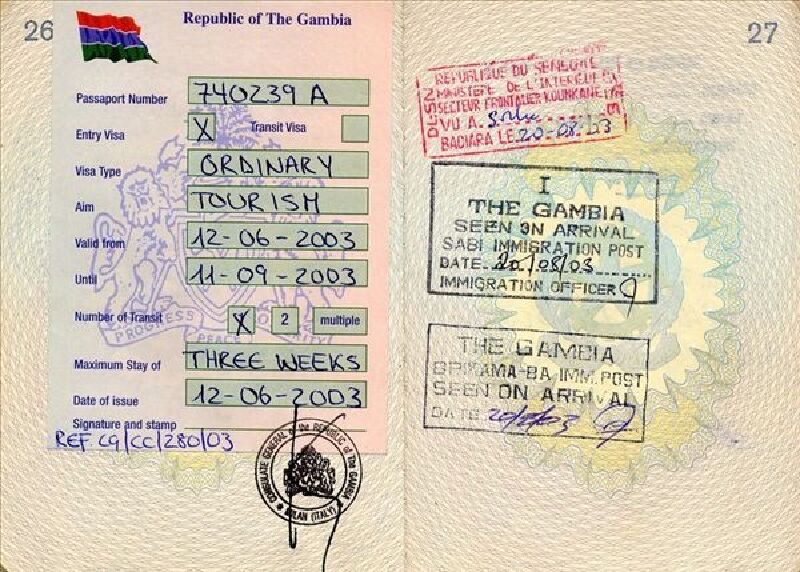 26
Republic of The Gambia
Passaport Number 740239 A
Entry Visa X Transit Visa
Visa Type ORDINARY
Aim TOURISM
Valid from 12-06-2003
Until 11-09-2003
Number of Transit X 2 multiple
PROGRESS PEACE
Maximum Stay of THREE WEEKS
Date of issue 12-06-2003
Signature and stamp
REF CG/CC/280/03
CONSULATE GENERAL of the REPUBLIC of THE GAMBIA
MILAN (ITALY)
27
REPUBLIQUE DU SENEGAL
MINISTERE DE L'INTERIEUR
SECTEUR FRONTALIER KOUNKANE
VU A
BADIARA LE 20-08-03
I
THE GAMBIA
SEEN ON ARRIVAL
SABI IMMIGRATION POST
DATE 20/08/03
IMMIGRATION OFFICER
THE GAMBIA
BRIKAMA-BA IMM. POST
SEEN ON ARRIVAL
DATE